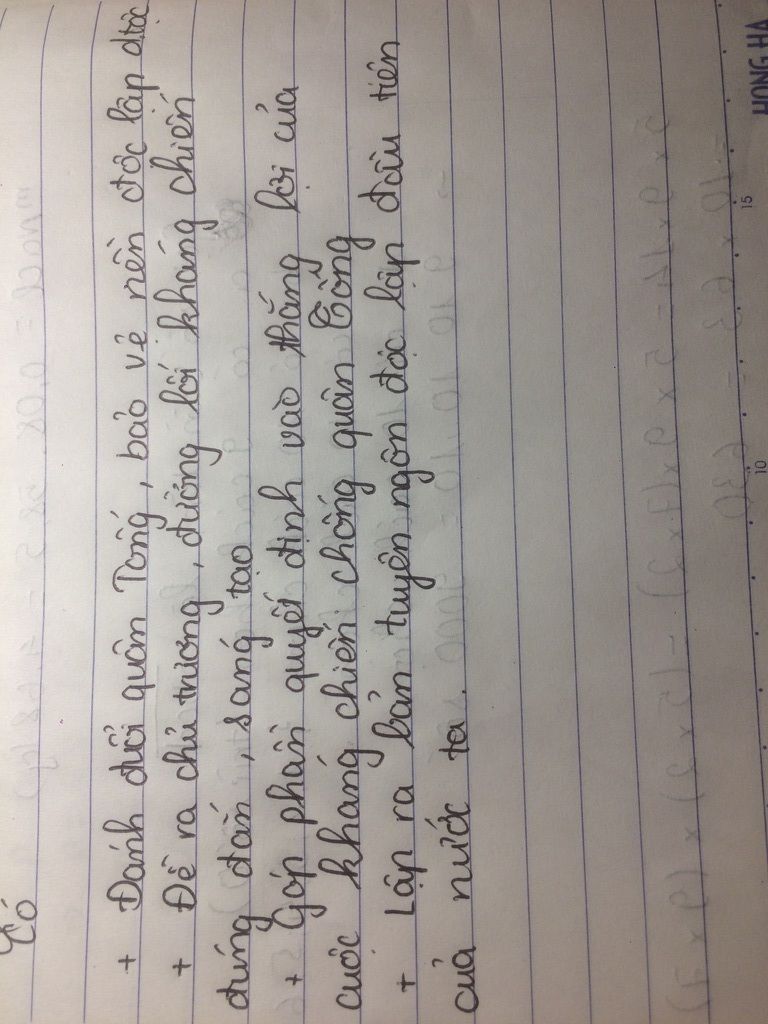 Có
+ Đánh đuổi quân Tống, bảo vệ nền độc lập dtộc
+ Đề ra chủ trương, đường lối kháng chiến
đúng đắn, sáng tạo
+ Góp phần quyết định vào thắng lợi của
cuộc kháng chiến chống quân Tống
+ Lập ra bản tuyên ngôn độc lập đầu tiên
của nước ta.
HONG HA
10 15